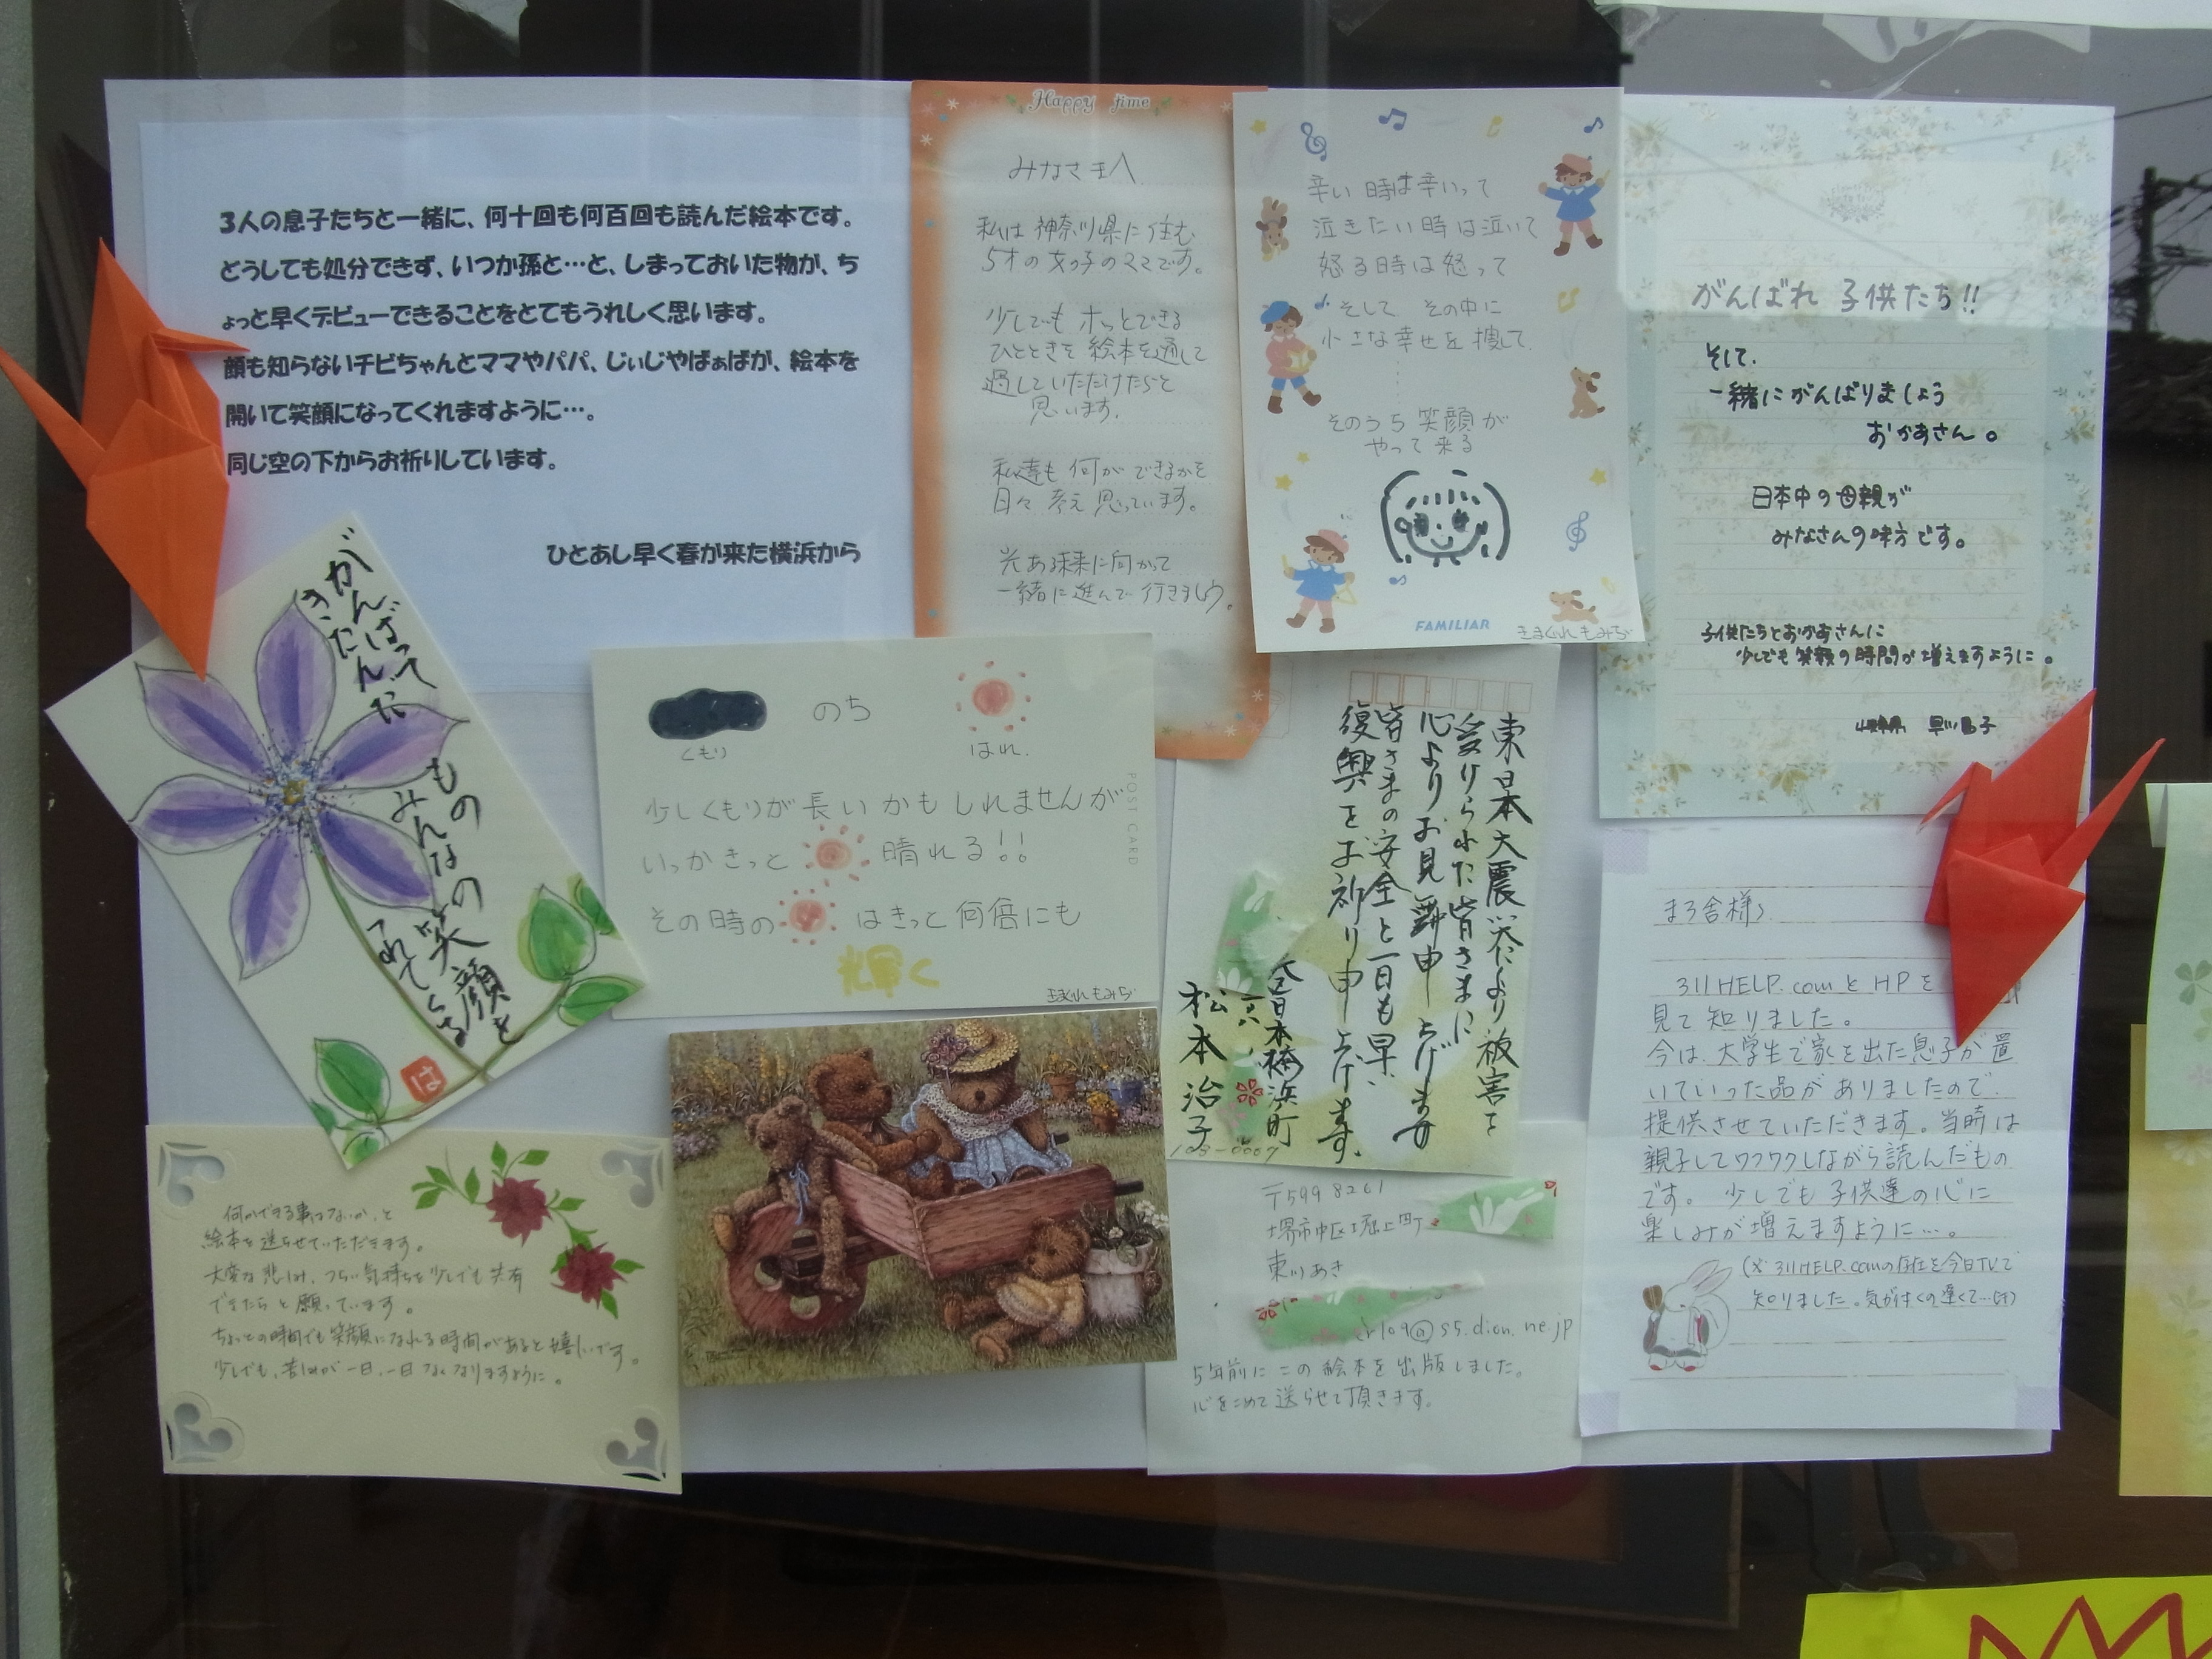 3人の息子たちと一緒に、何十回も何百回も読んだ絵本です。
どうしても処分できず、いつか孫と…と、しまっておいた物が、ち
ょっと早くデビューできることをとてもうれしく思います。
顔も知らないチビちゃんとママやパパ、じぃじやばぁばが、絵本を
開いて笑顔になってくれますように…。
同じ空の下からお祈りしています。
ひとあし早く春が来た横浜から
Happy Time
みなさまへ
私は神奈川県に住む
5才の女の子のママです。
少しでもホッとできる
ひとときを絵本を通して
過していただけたらと
思います。
私達も何ができるかを
日々考え思っています。
光ある未来に向かって
一緒に進んで行きましょう。
辛い時は辛いって
泣きたい時は泣いて
怒る時は怒って
そして その中に
小さな幸せを捜して
そのうち笑顔が
やって来る
FAMILIAR
きまぐれもみじ
がんばれ 子供たち!!
そして、
一緒にがんばりましょう
おかあさん。
日本中の母親が
みなさんの味方です。
子供たちとおかあさんに
少しでも笑顔の時間が増えますように。
がんばって
きたんだ
もの
みんなの笑顔を
は
のち
くもり
はれ
少しくもりが長いかもしれませんが
いつかきっと 晴れる!!
その時の はきっと何倍にも
輝く
きまぐれもみじ
POST CARD
東日本大震災により被害を
受けられた皆さまに
心よりお見舞申し上げます
皆さまの安全と一日も早い
復興をお祈り申し上げます。
日本橋浜町
松本治子
103-0007
何かできる事はないか、と
絵本を送らせていただきます。
大変な悲しみ、つらい気持ちを少しでも共有
できたらと願っています。
ちょっとの時間でも笑顔になれる時間があると嬉しいです。
少しでも、苦しみが一日、一日なくなりますように。
〒599 8261
堺市中区堀上町
東川あき
@s5.dion.ne.jp
5年前にこの絵本を出版しました。
心をこめて送らせて頂きます。
311HELP.comとHPを
見て知りました。
今は、大学生で家を出た息子が置
いていった品がありましたので、
提供させていただきます。当時は
親子してワクワクしながら読んだもの
です。少しでも子供達の心に
楽しみが増えますように…。
(※311HELP.comの存在を今日TVで
知りました。気が付くの遅くて…